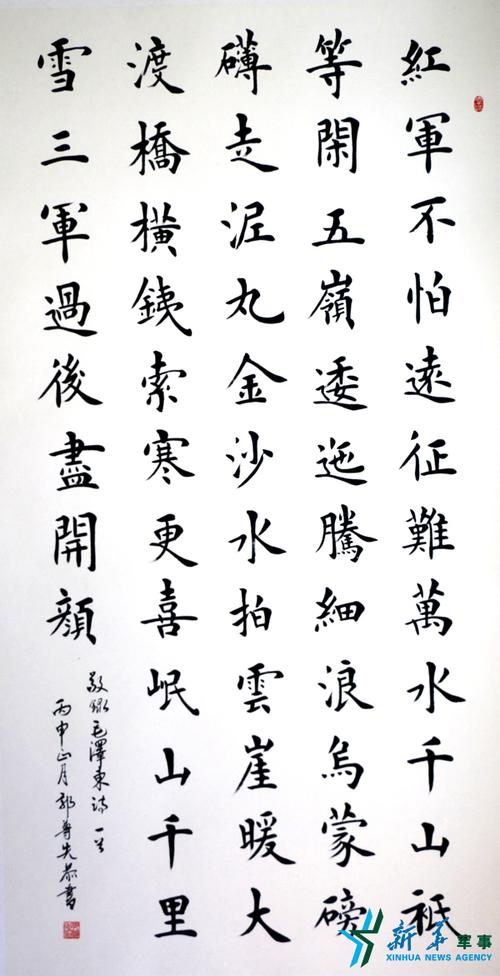 紅軍不怕遠征難萬水千山祗
等閑五嶺逶迤騰細浪烏蒙磅
礴走泥丸金沙水拍雲崖暖大
渡橋橫銕索寒更喜岷山千里
雪三軍過後盡開顏
敬錄毛澤東詩一首
丙申正月郭尊先恭書
新华军事
XINHUA NEWS AGENCY